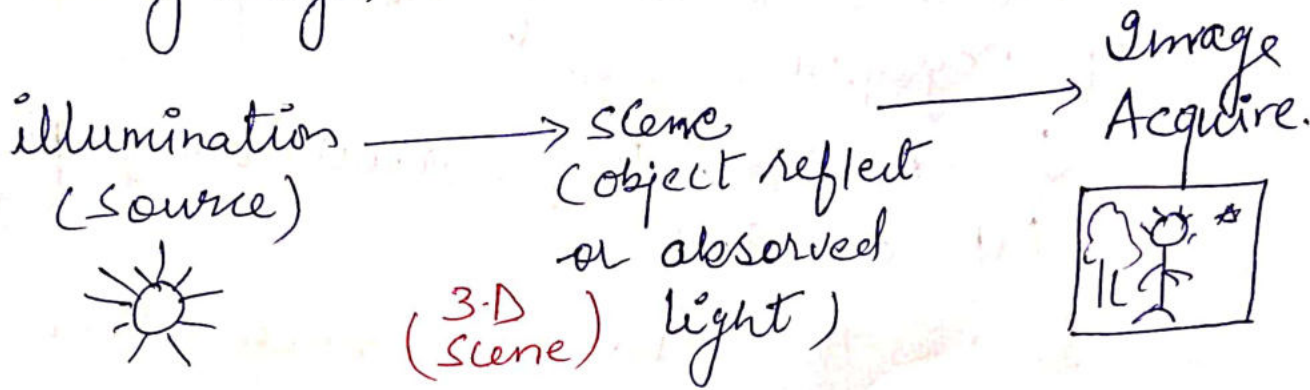 illumination
(source)
scene
(object reflect
or absorved
light)
(3-D
scene)
Image
Acquire.